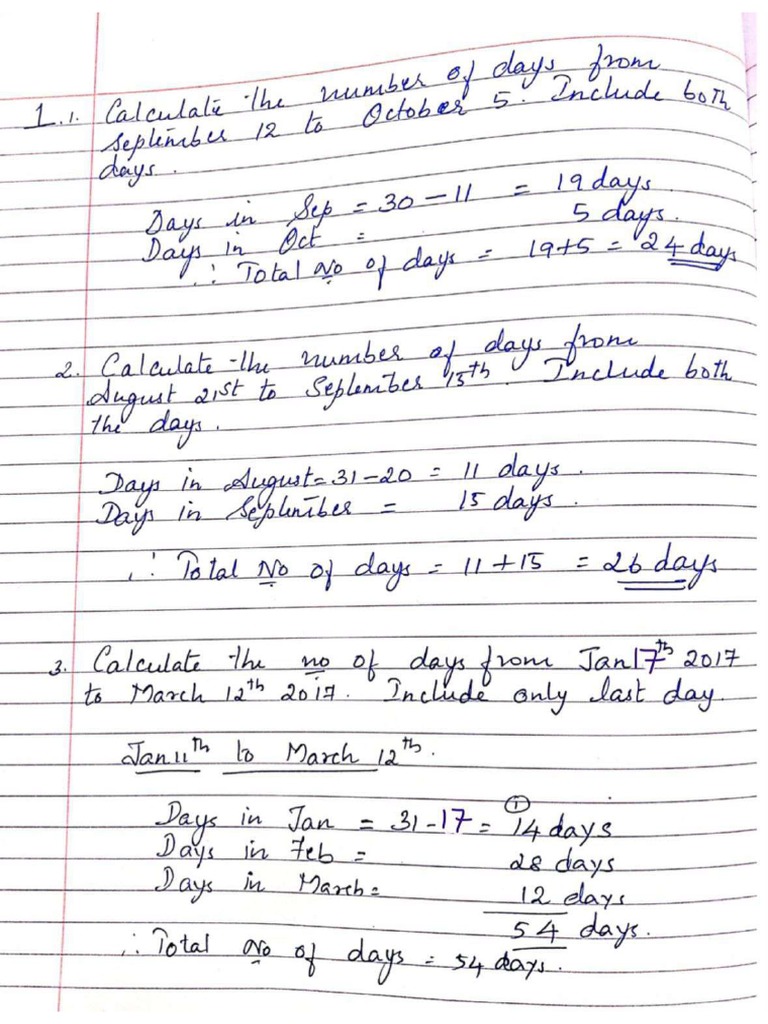 1.1. Calculate the number of days from
September 12 to October 5. Include both
days.
Days in Sep = 30 - 11 = 19 days
Days in Oct = 5 days.
∴ Total No of days = 19+5 = 24 days
2. Calculate the number of days from
August 21st to September 15th. Include both
the days.
Days in August = 31-20 = 11 days.
Days in September = 15 days.
∴ Total No of days = 11 + 15 = 26 days
3. Calculate the no of days from Jan 17th 2017
to March 12th 2017. Include only last day.
Jan 11th to March 12th.
1
Days in Jan = 31-17 = 14 days
Days in Feb = 28 days
Days in March = 12 days
54 days.
∴ Total No of days = 54 days.